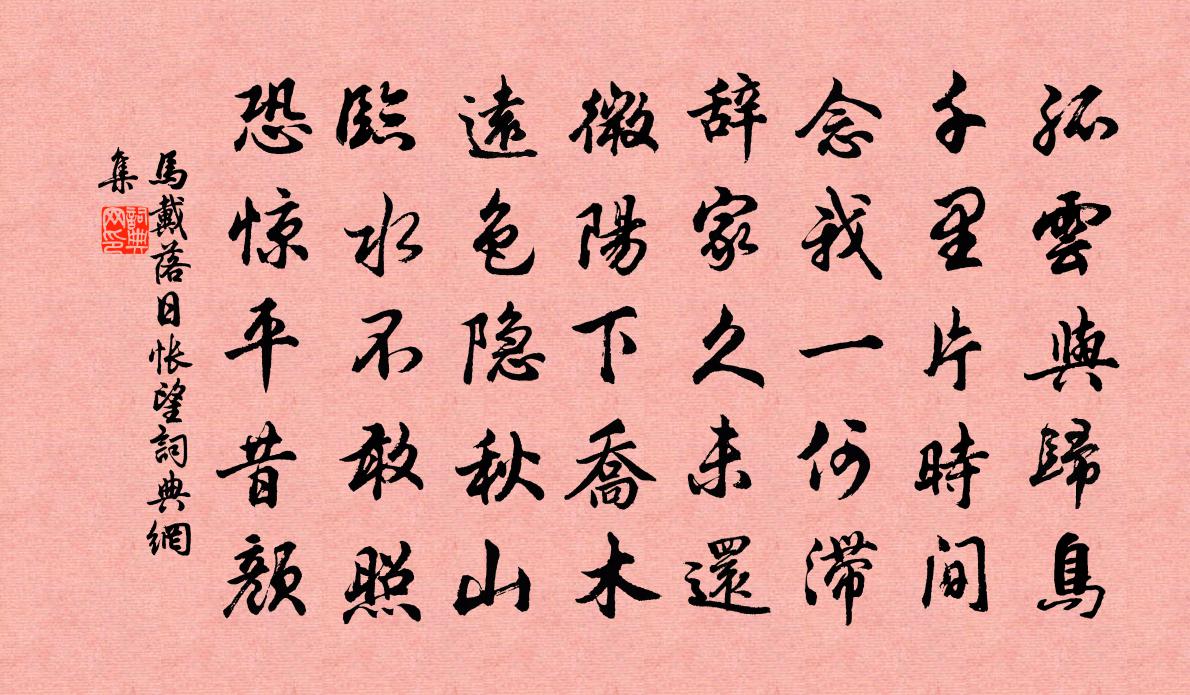 孤雲與歸鳥
千里片時間
念我一何滯
辞家久未還
微陽下喬木
遠色隐秋山
臨水不敢照
恐惊平昔顔
馬戴落日悵望詞典網
集
詞典
网印